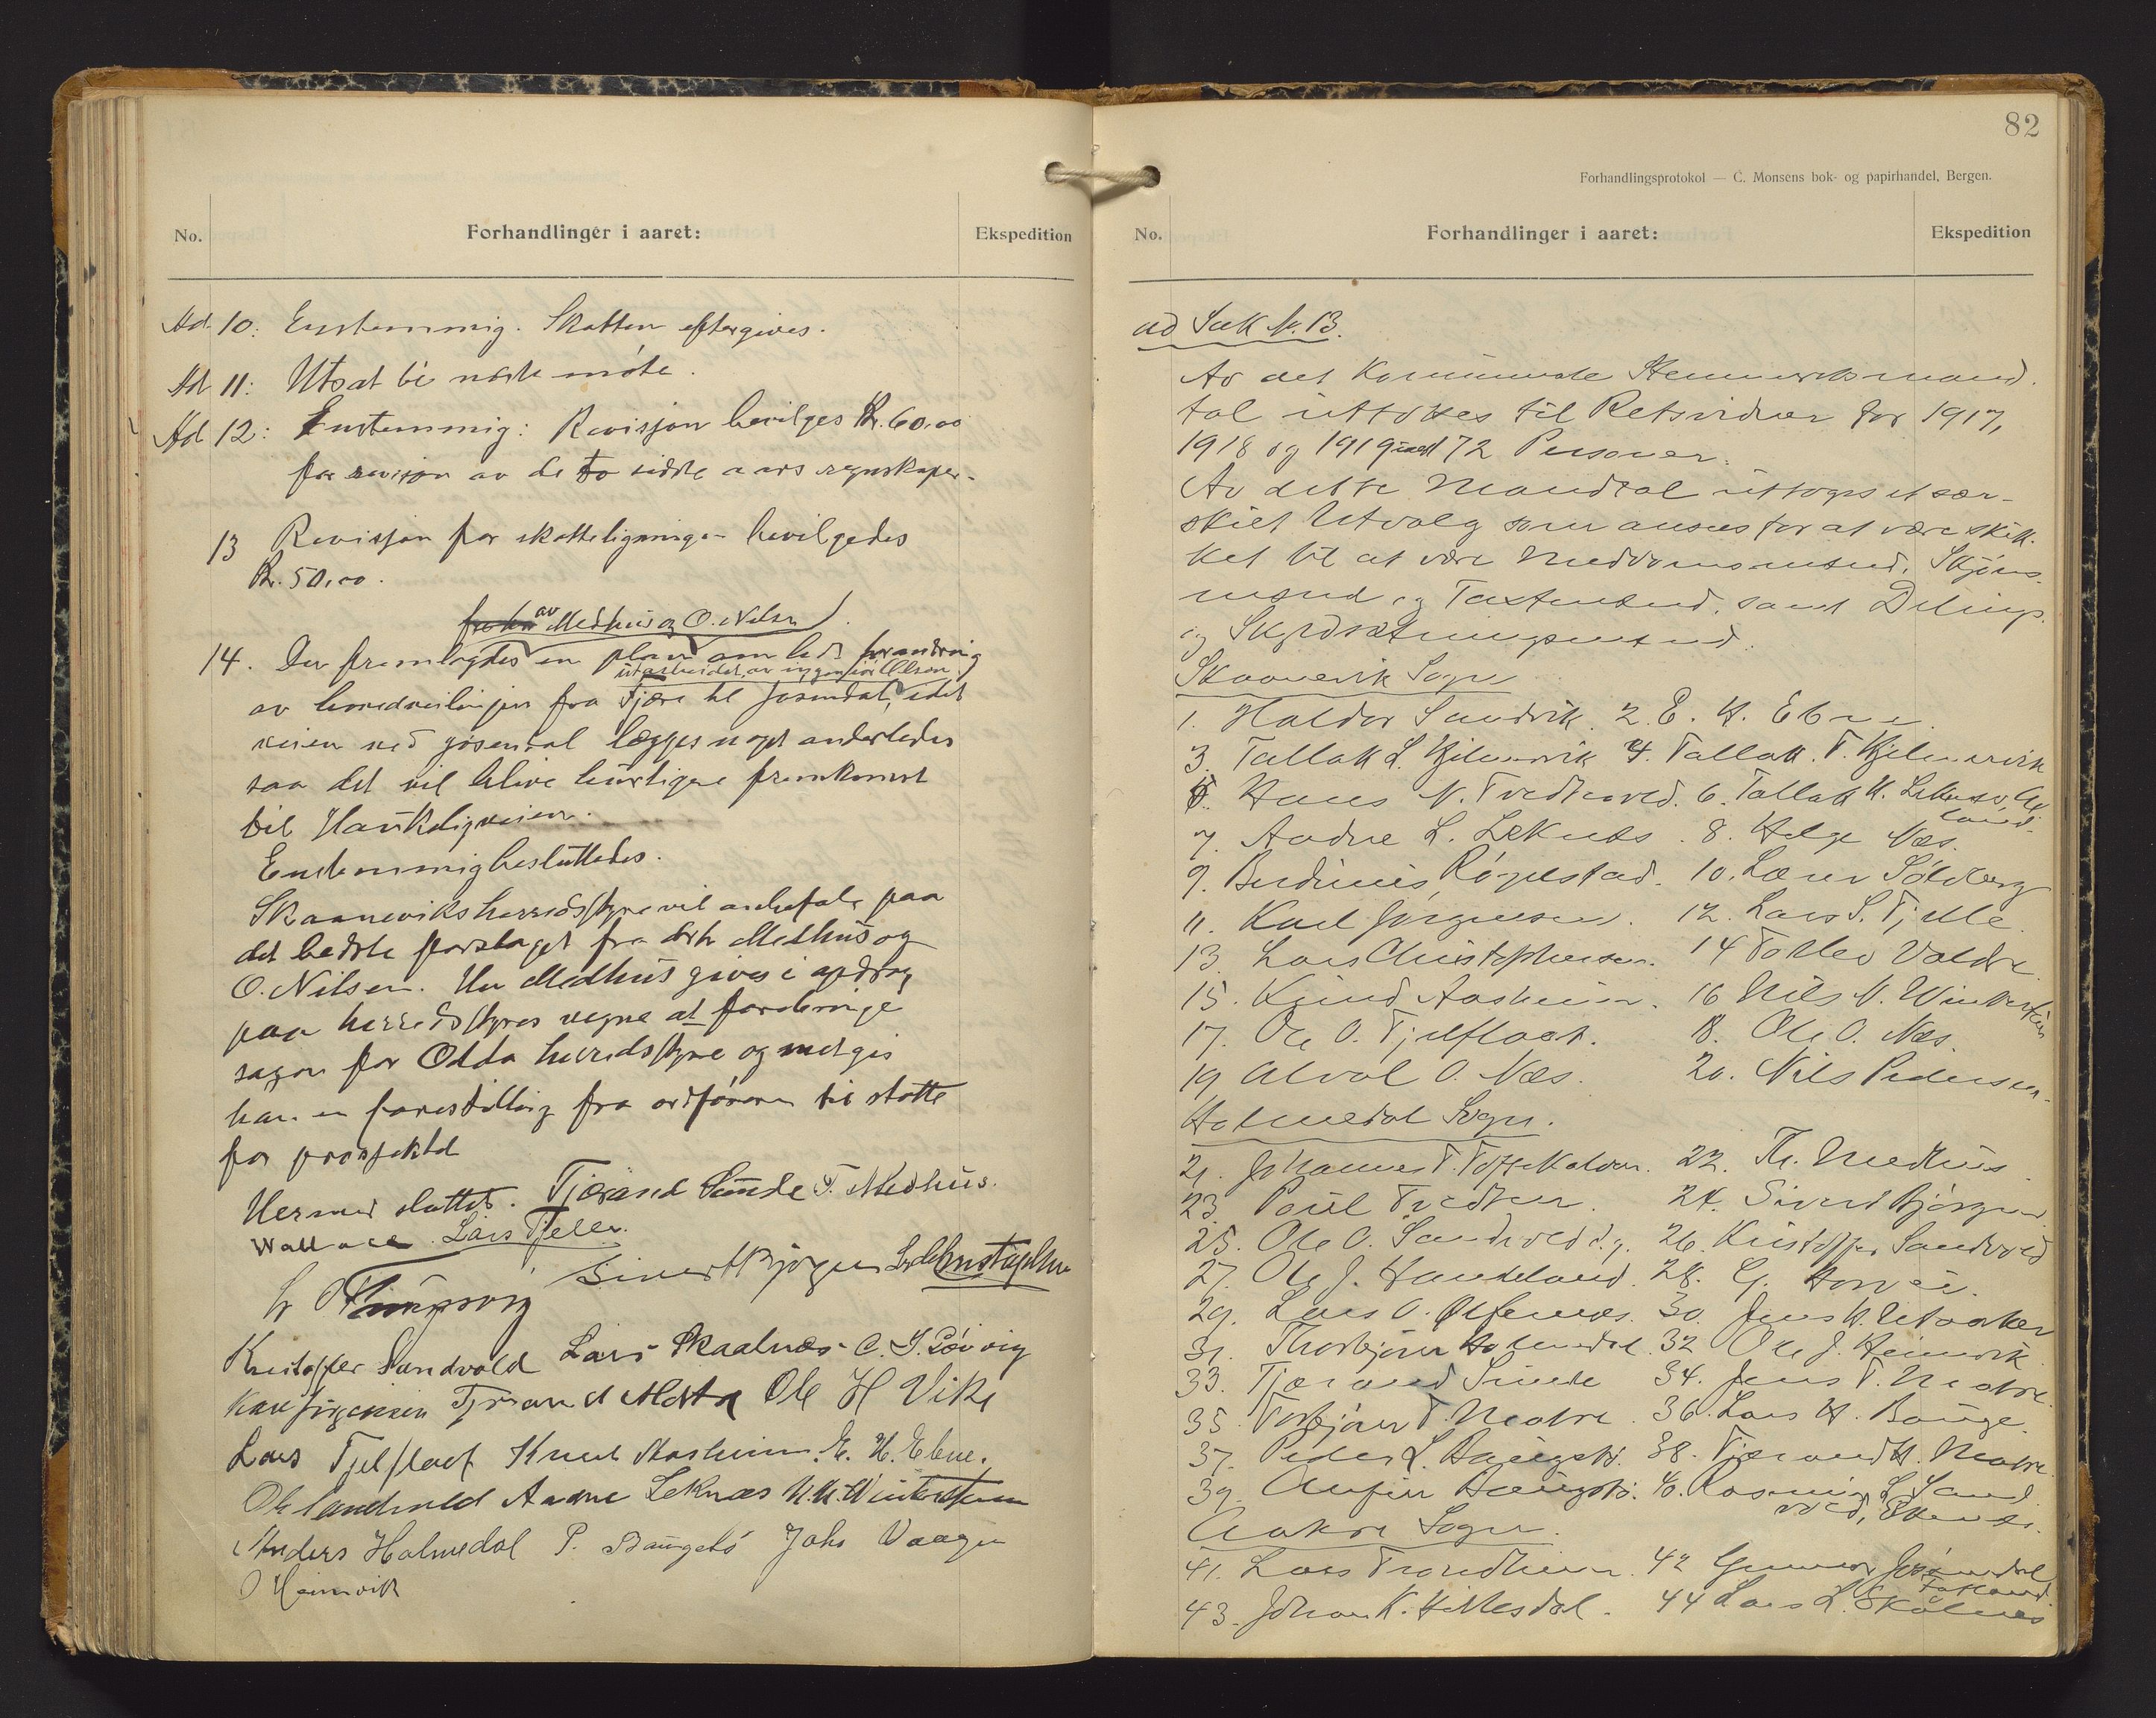 No. Forhandlinger i aaret: Ekspedition
Ad 10: Enstemmig. Skatten eftergives.
Ad 11: Utsat til næste møte.
Ad 12: Enstemmig: Revisjon bevilges Kr. 60.00
for revisjon av de to sidste aars regnskaper.
13 Revisjon for skatteligningen bevilgedes
Kr. 50.00.
av Medhus og O. Nilsen
14. Der fremlagdes en plan om forandring
utarbeidet av ingeniør Olsen
av hovedveilinjen fra Fjære til Jøsendal, idet
veien ved Jøsendal lægges noget anderledes
saa det vil blive hurtigere fremkomst
til Haukeligveien.
Enstemmig besluttedes.
Skaaneviks herredsstyre vil anbefale paa
det bedste forslaget fra Medhus og
O. Nilsen. Hr Medhus gives i opdrag
paa herredsstyres vegne at forebringe
sagen for Odda herredsstyre og medgis
han en forestilling fra ordføreren til støtte
for prosjektet
Hermed sluttet. Tjærand Sunde T. Medhus.
Wallace Lars Tjelle.
Sivert Bjørgen
Kristoffer Sandvold Lars Skaalnæs
Karl Jørgensen Ole H Vike
Lars Tjelflaat Knut Aasheim. E. H. Ebne.
Ole Sandvold Aadne Leknæs N. N. Wintertun
Anders Holmedal P. Baugstø Johs Vaagen
O Heimvik
82
Forhandlingsprotokol — C. Monsens bok- og papirhandel, Bergen.
No. Forhandlinger i aaret: Ekspedition
ad Sak N. 13.
Av det Kommunale Stemmerettsmand-
tal uttokes til Retsvidner for 1917,
1918 og 1919 72 Personer.
Av dette Mandtal uttoges et sær-
skilt Utvalg som ansees for at være skik-
ket til at være Meddomsmænd, Skjøns-
mænd og Taxtmænd, samt Delings
og Skyldsætningsmænd.
Skaanevik Sogn
1. Haldor Sandvik. 2. E. H. Ebne.
3. Tallak L. Kjelmevik 4. Tallak T. Kjelmevik
5. Hans N. Tvedtaved. 6. Tallak
7. Aadne L. Leknæs. 8. Helge Næs.
9. Berdinius Røgelstad. 10. Sölvberg
11. Karl Jørgensen. 12. Lars S. Tjelle.
13. Lars Christophersen. 14 Tollev Valdre.
15. Knud Aasheim. 16 Nils N. Wintertun
17. Ole O. Tjelflaat. 18. Ole O. Næs.
19 O. Næs. 20. Nils Pedersen.
Holmedal Sogn.
21. Johannes T. 22. Th. Medhus
23. Poul Tvedten. 24. Sivert Bjørgen
25. Ole O. Sandvold d.y. 26. Kristoffer Sandvold
27. Ole J. Handeland. 28. G.
29. Lars O. Ølfernæs. 30. Jens H. Utaaker
31. Thorbjørn Holmedal. 32 Ole J. Heimvik
33. Tjærand Sunde 34. Jens T. Matre.
35. Torbjørn T. Matre. 36. Lars H. Bauge.
37. Peder L. Baugstø. 38. Tjærand H. Matre.
39. Anfin Baugstø. 40. Rasmus L. Sand
vold,
Aakre Sogn.
41. Lars Trondheim. 42 Gunnar Jøsendal
43. Johan K. Hillesdal. 44 Lars L. Skålnes